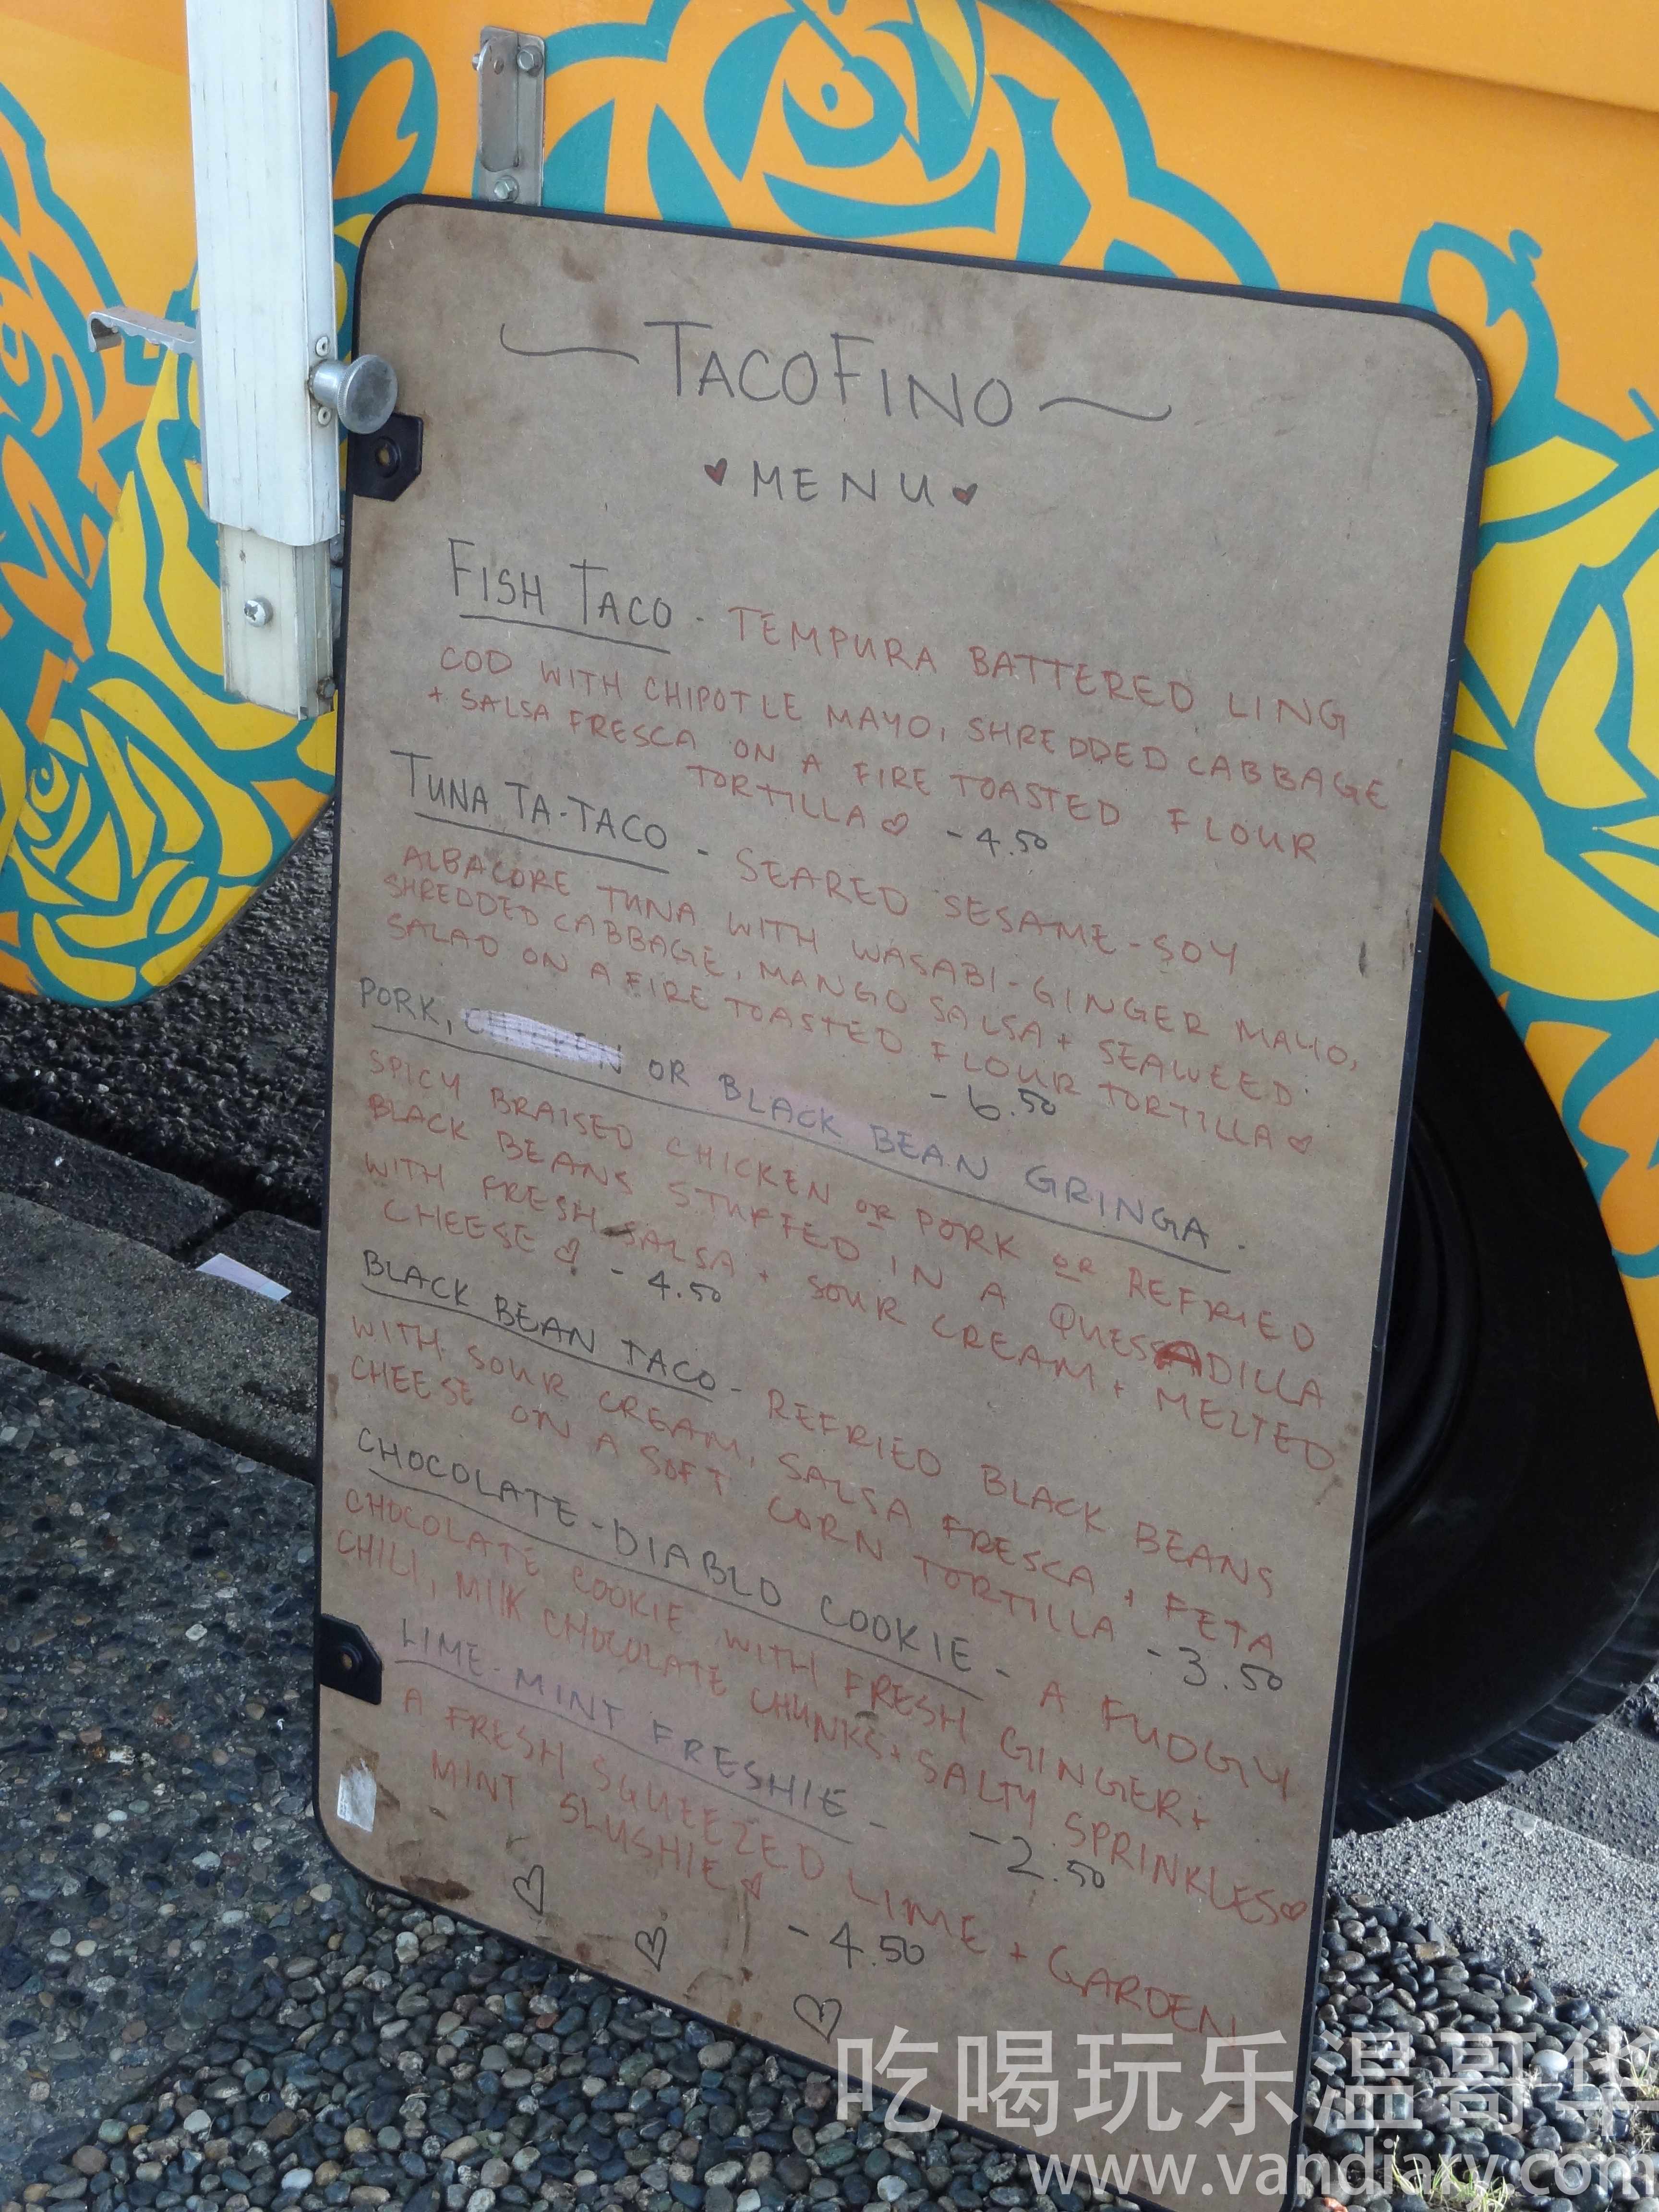 TACOFINO
MENU
FISH TACO - TEMPURA BATTERED LING
COD WITH CHIPOTLE MAYO, SHREDDED CABBAGE
+ SALSA FRESCA ON A FIRE TOASTED FLOUR
TORTILLA ♡ - 4.50
TUNA TA-TACO - SEARED SESAME-SOY
ALBACORE TUNA WITH WASABI-GINGER MAYO,
SHREDDED CABBAGE, MANGO SALSA + SEAWEED
SALAD ON A FIRE TOASTED FLOUR TORTILLA ♡
- 6.50
PORK, CHICKEN OR BLACK BEAN GRINGA -
SPICY BRAISED CHICKEN OR PORK OR REFRIED
BLACK BEANS STUFFED IN A QUESSADILLA
WITH FRESH SALSA + SOUR CREAM + MELTED
CHEESE ♡ - 4.50
BLACK BEAN TACO - REFRIED BLACK BEANS
WITH SOUR CREAM, SALSA FRESCA + FETA
CHEESE ON A SOFT CORN TORTILLA - 3.50
CHOCOLATE-DIABLO COOKIE - A FUDGY
CHOCOLATE COOKIE WITH FRESH GINGER +
CHILI, MILK CHOCOLATE CHUNKS + SALTY SPRINKLES ♡
- 2.50
LIME-MINT FRESHIE -
A FRESH SQUEEZED LIME + GARDEN
MINT SLUSHIE ♡
- 4.50
吃喝玩乐温哥华
www.vandiary.com